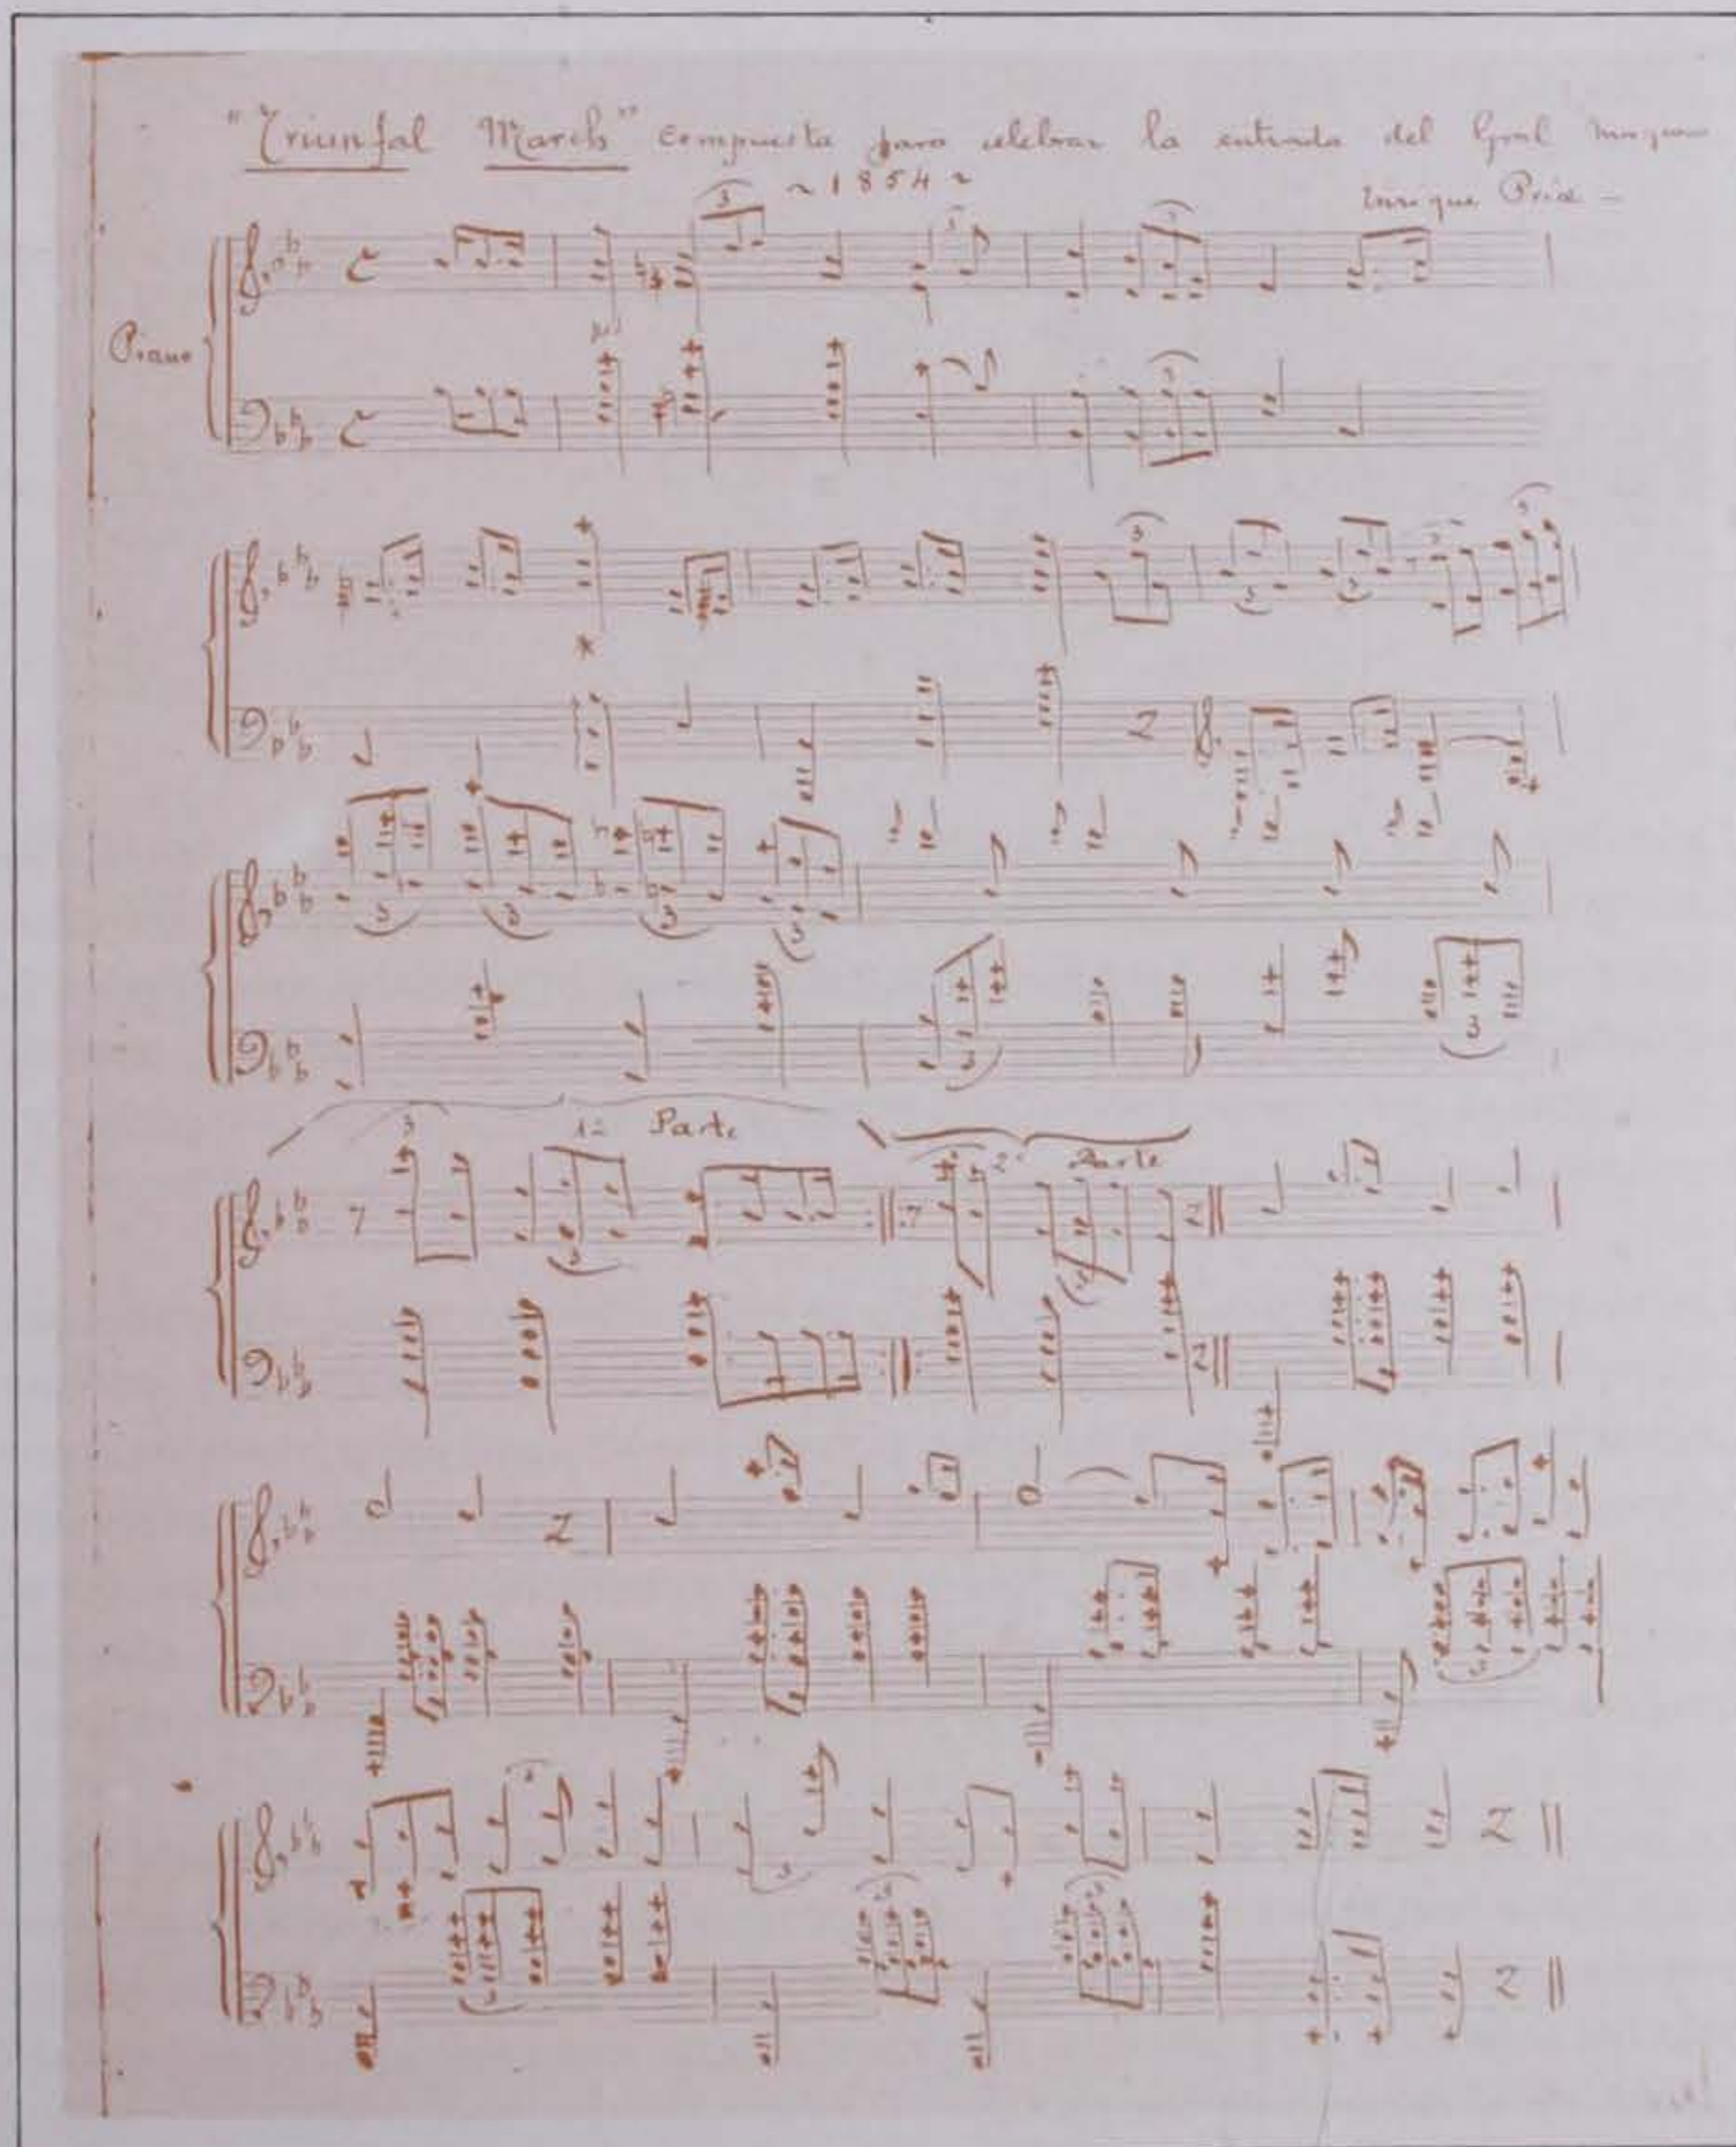 "Triunfal March" compuesta para celebrar la entrada del Gral
~ 1854 ~
Enrique
Piano
3
3
3
1ª Parte
3
2ª Parte